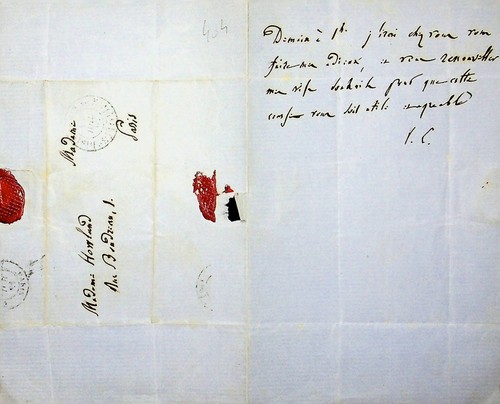 404
Demain à 1h. j'irai chez vous vous
faire mes adieux, et vous renouveller
mes vifs souhaits pour que cette
vous soit utile et agréable
J. C.
Madame
Madame
Rue Boudreau, 1.
Paris